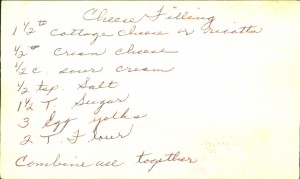 Cheese Filling
1 1/2 # cottage cheese or ricotta
1/2 # cream cheese
1/2 c. sour cream
1/2 tsp. Salt
1 1/2 T. Sugar
3 Egg yolks
2 T. Flour
Combine all together